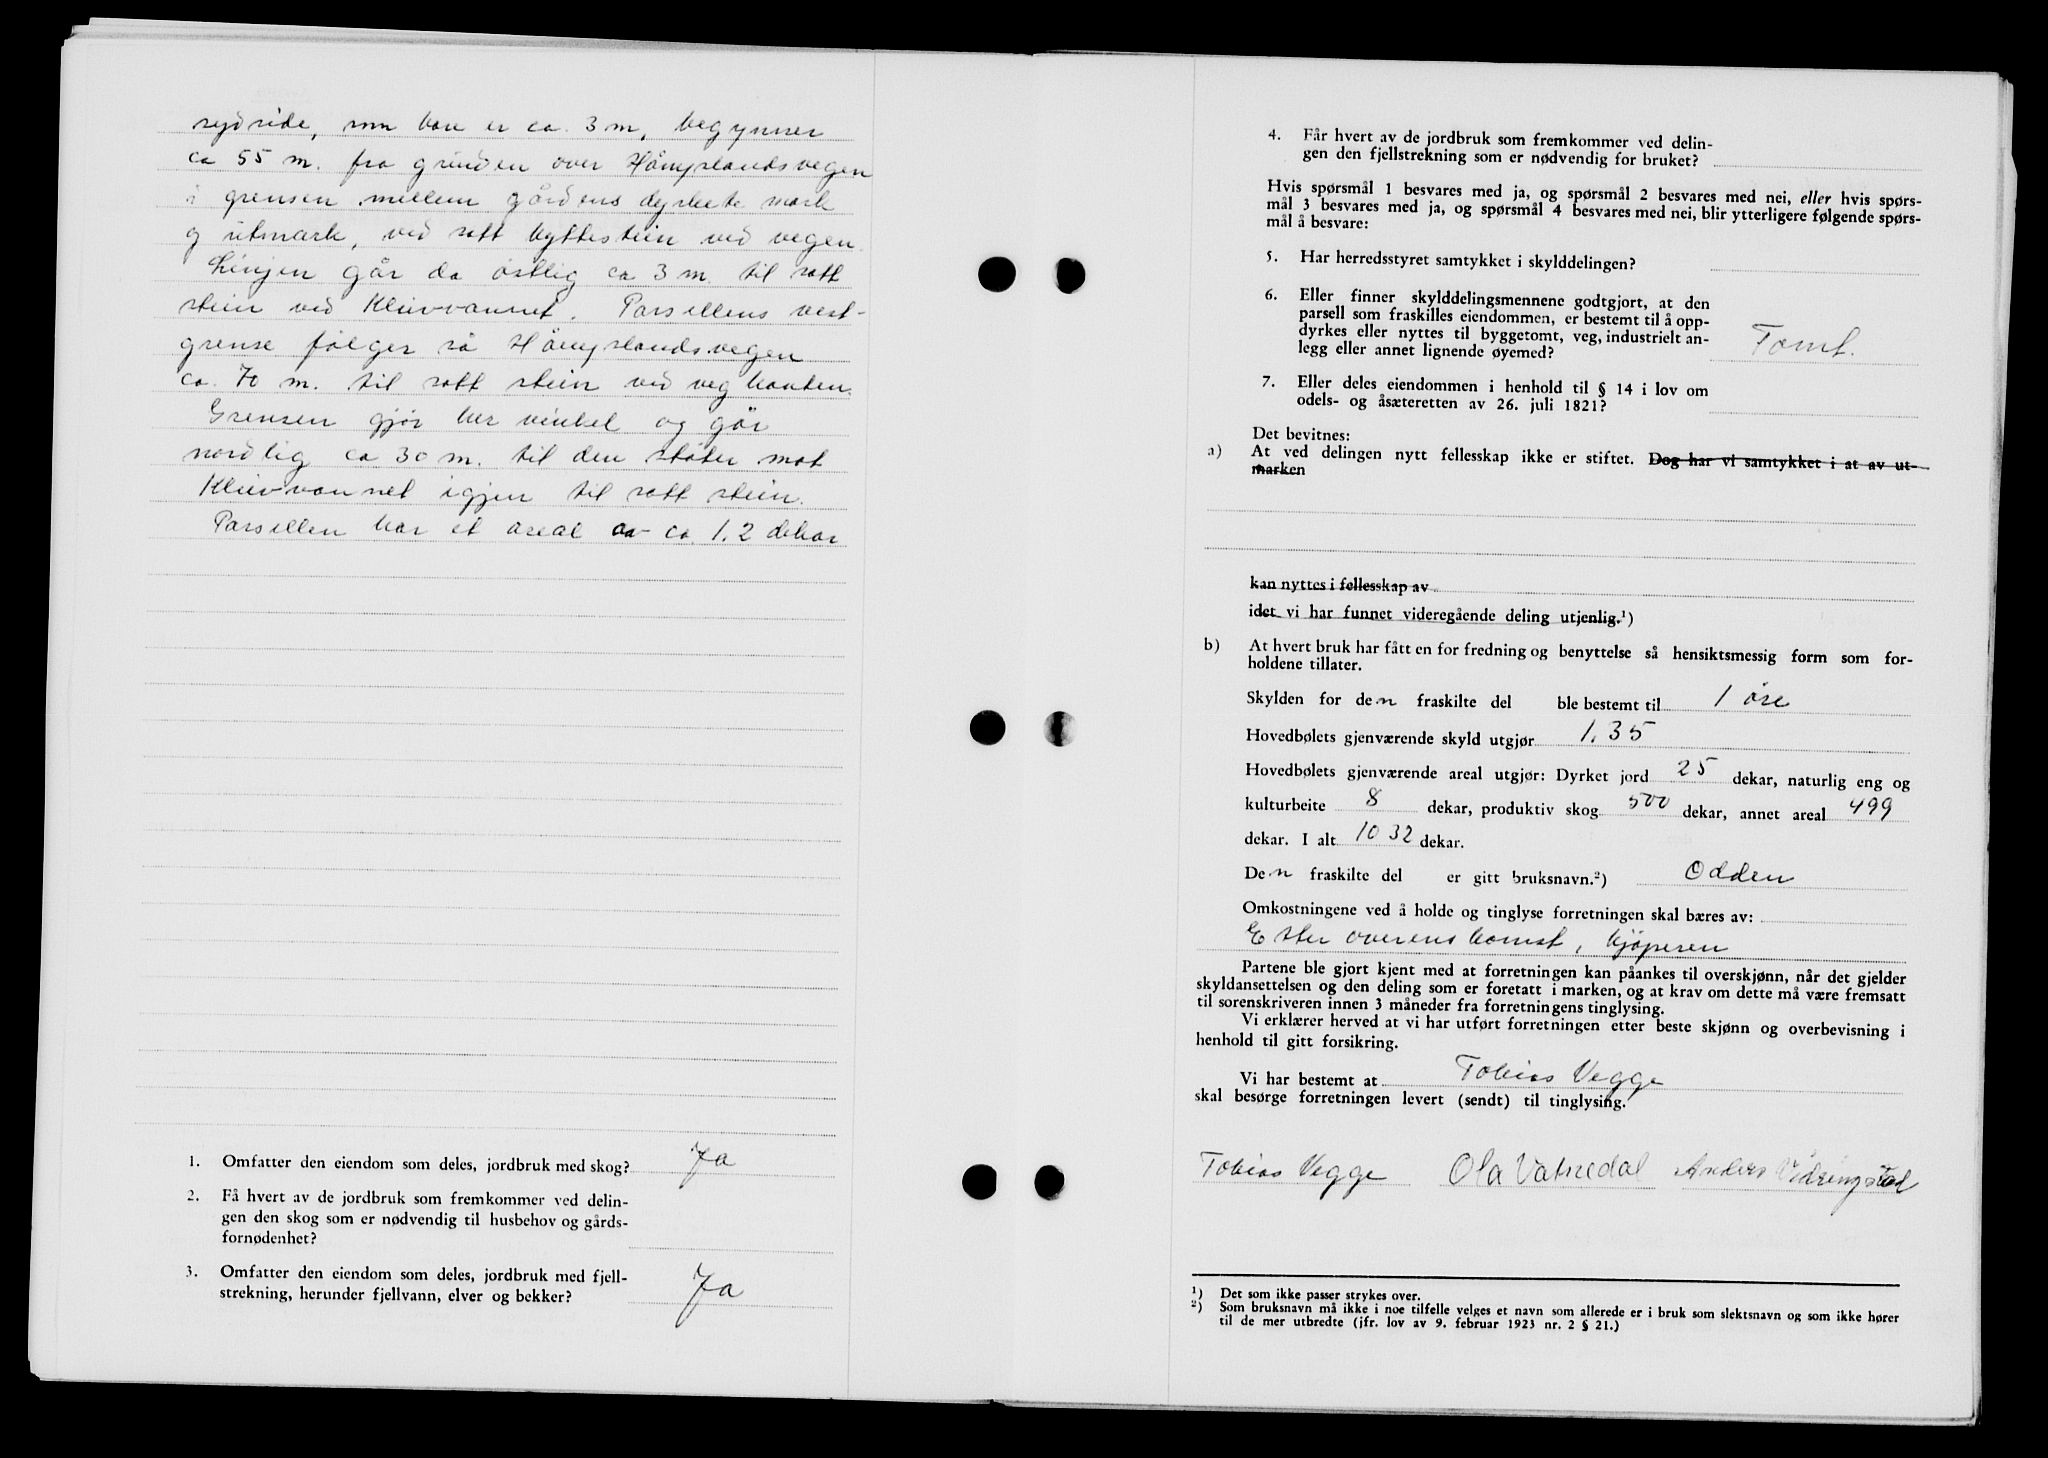 sydside, som bare er ca. 3 m, begynner
ca 55 m. fra grinden over Håmyslandsvegen
i grensen mellem gårdens dyrkete mark
og utmark, ved satt byttestein ved vegen.
Linjen går da østlig ca 3 m. til satt
stein ved Kleivvannet. Parsellens vest-
grense følger så Håmyslandsvegen
ca. 70 m. til satt stein ved vegkanten.
Grensen gjør her vinkel og går
nordlig ca 30 m. til den støter mot
Kleivvannet igjen til satt stein.
Parsellen har et areal av ca. 1.2 dekar
1. Omfatter den eiendom som deles, jordbruk med skog? Ja
2. Få hvert av de jordbruk som fremkommer ved delin-
gen den skog som er nødvendig til husbehov og gårds-
fornødenhet?
3. Omfatter den eiendom som deles, jordbruk med fjell-
strekning, herunder fjellvann, elver og bekker? Ja
4. Får hvert av de jordbruk som fremkommer ved delin-
gen den fjellstrekning som er nødvendig for bruket?
Hvis spørsmål 1 besvares med ja, og spørsmål 2 besvares med nei, eller hvis spørs-
mål 3 besvares med ja, og spørsmål 4 besvares med nei, blir ytterligere følgende spørs-
mål å besvare:
5. Har herredsstyret samtykket i skylddelingen?
6. Eller finner skylddelingsmennene godtgjort, at den
parsell som fraskilles eiendommen, er bestemt til å opp-
dyrkes eller nyttes til byggetomt, veg, industrielt an-
legg eller annet lignende øyemed? Tomt.
7. Eller deles eiendommen i henhold til § 14 i lov om
odels- og åsæteretten av 26. juli 1821?
Det bevitnes:
a) At ved delingen nytt fellesskap ikke er stiftet. Dog har vi samtykket i at av ut-
marken
kan nyttes i fellesskap av
idet vi har funnet videregående deling utjenlig.¹)
b) At hvert bruk har fått en for fredning og benyttelse så hensiktsmessig form som for-
holdene tillater.
Skylden for den fraskilte del ble bestemt til 1 øre
Hovedbølets gjenværende skyld utgjør 1.35
Hovedbølets gjenværende areal utgjør: Dyrket jord 25 dekar, naturlig eng og
kulturbeite 8 dekar, produktiv skog 500 dekar, annet areal 499
dekar. I alt 1032 dekar.
Den fraskilte del er gitt bruksnavn.²) Odden
Omkostningene ved å holde og tinglyse forretningen skal bæres av:
Etter overenskomst, kjøperen
Partene ble gjort kjent med at forretningen kan påankes til overskjønn, når det gjelder
skyldansettelsen og den deling som er foretatt i marken, og at krav om dette må være fremsatt
til sorenskriveren innen 3 måneder fra forretningens tinglysing.
Vi erklærer herved at vi har utført forretningen etter beste skjønn og overbevisning i
henhold til gitt forsikring.
Vi har bestemt at Tobias Vegge
skal besørge forretningen levert (sendt) til tinglysing.
Tobias Vegge Ola Vatnedal Anders Vidringstad
¹) Det som ikke passer strykes over.
²) Som bruksnavn må ikke i noe tilfelle velges et navn som allerede er i bruk som slektsnavn og som ikke hører
til de mer utbredte (jfr. lov av 9. februar 1923 nr. 2 § 21.)